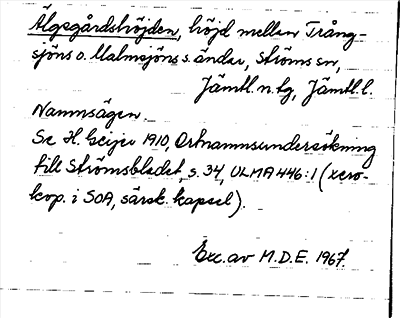 Älgsgårdshöjden, höjd mellan Trång-
sjöns o. Malmsjöns s. ändar, Ströms sn,
Jämtl. n. fg, Jämtl. l.
Namnsägen.
Se H. Geijer 1910, Ortnamnsundersökning
till Strömsbladet, s. 34, ULMA 446:1 (xero-
kop. i SOA, särsk. kapsel).
Exc. av M.D.E. 1967.